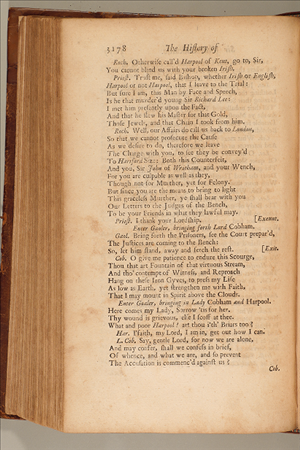 3178 The History of
Roch. Otherwise call'd Harpool of Kent, go to, Sir,
You cannot blind us with your broken Irish.
Priest. Trust me, said Bishop, whether Irish or English,
Harpool or not Harpool, that I leave to the Trial:
But sure I am, this Man by Face and Speech,
Is he that murder'd young Sir Richard Lee:
I met him presently upon the Fact,
And that he slew his Master for that Gold,
Those Jewels, and that Chain I took from him.
Roch. Well, our Affairs do call us back to London,
So that we cannot prosecute the Cause
As we desire to do, therefore we leave
The Charge with you, to see they be convey'd
To Hartford Size: Both this Counterfeit,
And you, Sir John of Wrotham, and your Wench,
For you are culpable as well as they,
Though not for Murther, yet for Felony.
But since you are the means to bring to light
This graceless Murther, ye shall bear with you
Our Letters to the Judges of the Bench,
To be your Friends in what they lawful may.
Priest. I thank your Lordship. [Exeunt.
Enter Gaoler, bringing forth Lord Cobham.
Gaol. Bring forth the Prisoners, see the Court prepar'd,
The Justices are coming to the Bench:
So, let him stand, away and fetch the rest. [Exit.
Cob. O give me patience to endure this Scourge,
Thou that art Fountain of that virtuous Stream,
And tho' contempt of Witness, and Reproach
Hang on these Iron Gyves, to press my Life
As low as Earth, yet strengthen me with Faith,
That I may mount in Spirit above the Clouds.
Enter Gaoler, bringing in Lady Cobham and Harpool.
Here comes my Lady, Sorrow 'tis for her,
Thy wound is grievous, else I scoff at thee.
What and poor Harpool! art thou i'th' Briars too?
Har. I'faith, my Lord, I am in, get out how I can.
L. Cob. Say, gentle Lord, for now we are alone,
And may confer, shall we confess in brief,
Of whence, and what we are, and so prevent
The Accusation is commenc'd against us?
Cob.